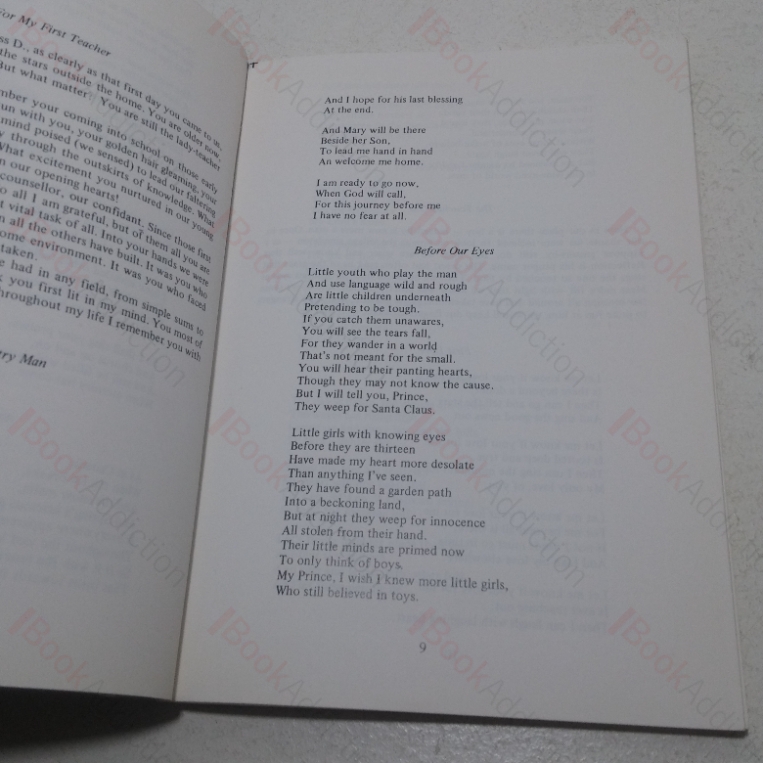 For My First Teacher
ss D., as clearly as that first day you came to us,
the stars outside the home. You are older now,
But what matter? You are still the lady-teacher
mber your coming into school on those early
un with you, your golden hair gleaming, your
mind poised (we sensed) to lead our faltering
y through the outskirts of knowledge. What
What excitement you nurtured in our young
n our opening hearts!
counsellor, our confidant. Since those first
o all I am grateful, but of them all you are
t vital task of all. Into your hands we were
n all the others have built. It was you who
ome environment. It was you who faced
taken.
e had in any field, from simple sums to
k you first lit in my mind. You most of
hroughout my life I remember you with
ry Man
And I hope for his last blessing
At the end.
And Mary will be there
Beside her Son,
To lead me hand in hand
An welcome me home.
I am ready to go now,
When God will call,
For this journey before me
I have no fear at all.
Before Our Eyes
Little youth who play the man
And use language wild and rough
Are little children underneath
Pretending to be tough.
If you catch them unawares,
You will see the tears fall,
For they wander in a world
That's not meant for the small.
You will hear their panting hearts,
Though they may not know the cause.
But I will tell you, Prince,
They weep for Santa Claus.
Little girls with knowing eyes
Before they are thirteen
Have made my heart more desolate
Than anything I've seen.
They have found a garden path
Into a beckoning land,
But at night they weep for innocence
All stolen from their hand.
Their little minds are primed now
To only think of boys.
My Prince, I wish I knew more little girls,
Who still believed in toys.
9
BookAddiction